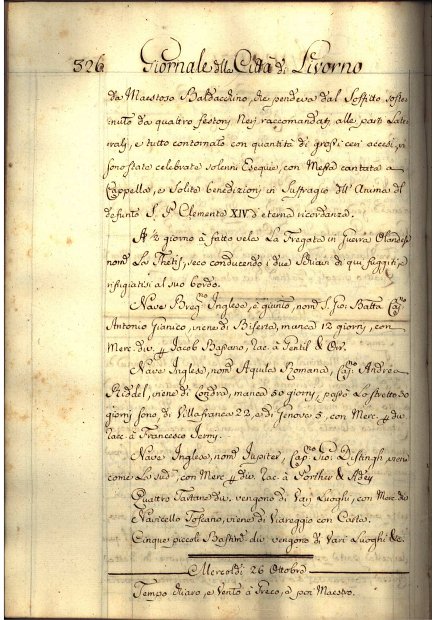 326 Giornale della Città di Livorno
da Maestoso Baldacchino, che pendeva dal Soffitto soste-
nuto da quattro festoni Neri raccomandati alle parti Late-
rali, e tutto contornato con quantità di grossi ceri accesi, vi
sono state celebrate solenni Esequie, con Messa cantata a
Cappella, e Solite benedizioni in Suffragio dell'Anima del
defunto S. P. Clemente XIV d'eterna ricordanza.
A ½ giorno à fatto vela La Fregata in Guerra Olandese
nom.a La Thetis, seco conducendo i due Schiavi di qui fuggiti, e
rifugiatisi al suo bordo.
Nave Inglese, è giunto, nom.o S. Gio: Batta Cap.no
Antonio Gianico, viene di Biserta, manca 12 giorni, con
Merc. div. p Jacob Bassano, Rac. à Gentil & Orr.
Nave Inglese, nom.a Aquila Romana, Cap: Andrea
Riddel, viene di Londra, manca 50 giorni, passò Lo stretto 30
giorni sono di Villafranca 22, e di Genova 5, con Merc. p div.
rac. à Francesco Jermy.
Nave Inglese, nom.a Jupiter, Cap.no Gio: Distingh, viene
come La sud.a, con Merc. p div. Rac. à Porther & Adey
Quattro Tartane div. vengono di Varj Luoghi, con Merc. div.
Navicello Toscano, viene di Viareggio con Casta.
Cinque piccoli Bastim. div. vengono di Vari Luoghi &c.
Mercoldì 26 Ottobre
Tempo chiaro, e Vento à Greco, e poi Maestro.